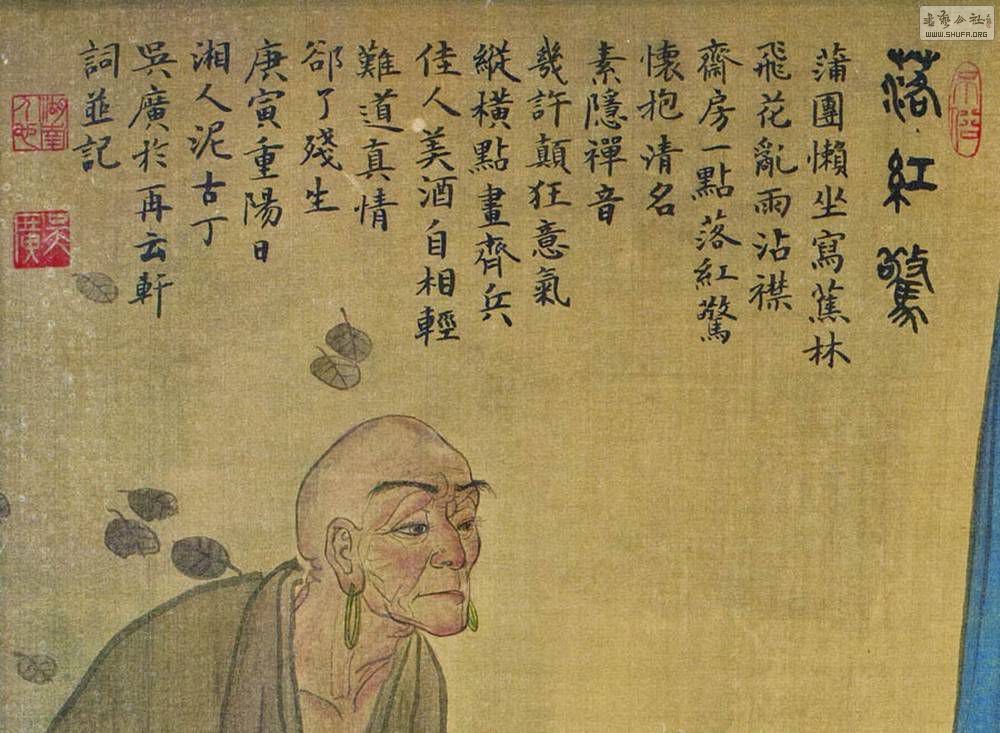 落紅驚
蒲團懶坐寫蕉林
飛花亂雨沾襟
齋房一點落紅驚
懷抱清名
素隱禪音
幾許顛狂意氣
縱橫點畫齊兵
佳人美酒自相輕
難道真情
卻了殘生
庚寅重陽日
湘人泥古丁
吳廣於再云軒
詞並記
湖南人也
吳廣
WWW.SHUFA.ORG